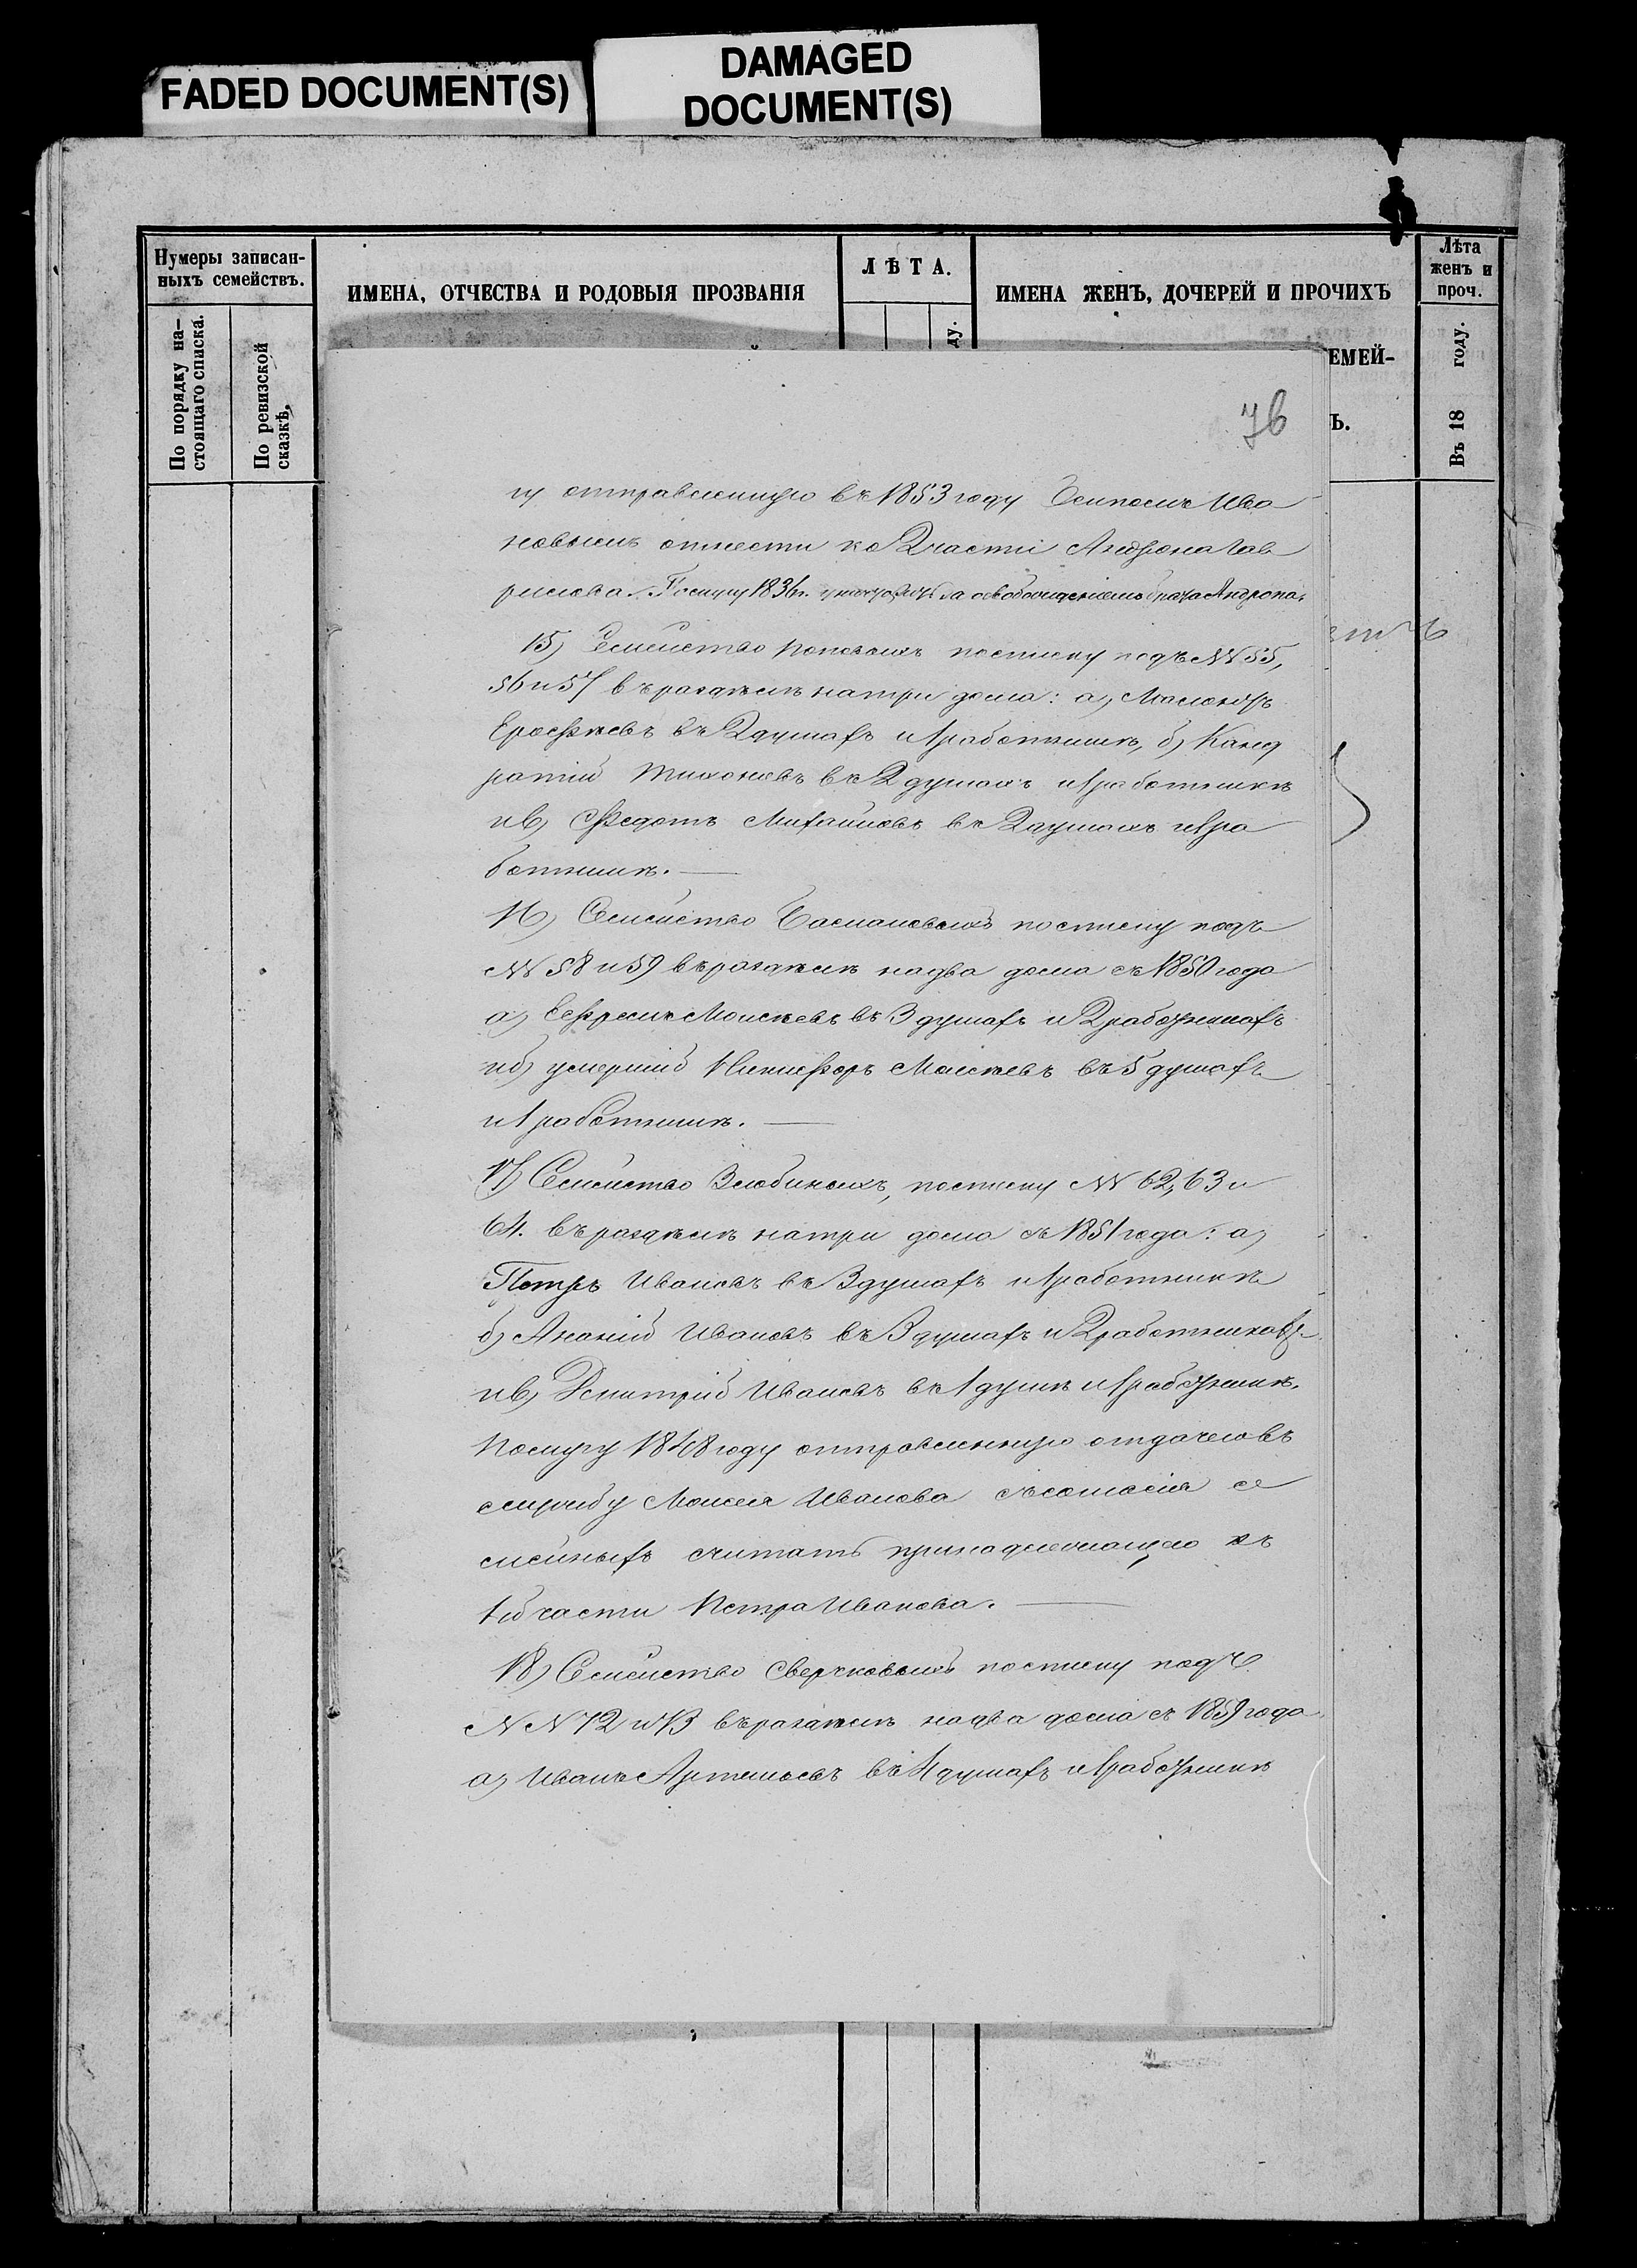 FADED DOCUMENT(S)
DAMAGED
DOCUMENT(S)
Нумеры записан-
ныхъ семействъ.
По порядку на-
стоящаго списка.
По ревизской
сказкѣ.
ИМЕНА, ОТЧЕСТВА И РОДОВЫЯ ПРОЗВАНІЯ
ЛѢТА.
ду.
ИМЕНА ЖЕНЪ, ДОЧЕРЕЙ И ПРОЧИХЪ
ЕМЕЙ-
Ъ.
Лѣта
женъ и
проч.
Въ 18 году.
76
гу отправленную въ 1853 году Осипомъ Ива
новымъ отнести ко 2 части Андрона Гав
рилова. 1836 г. за освобожденіемъ брата Андрона.
15) Семейство Поповыхъ по списку подъ №№ 55,
56 и 57 въ раздѣлѣ на три дома: а)
Ерофѣевъ въ 2 душахъ и 1 работникѣ, б) Канд
ратій Тихоновъ въ 2 душахъ и 1 работникѣ
и в) Федотъ Михайловъ въ 2 душахъ и 1 ра
ботникѣ.
16) Семейство Басмановыхъ по списку подъ
№ 58 и 59 въ раздѣлѣ на два дома съ 1850 года
а) Ефремъ Моисѣевъ въ 3 душахъ и 2 работникахъ
и б) умершій Никифоръ Моисѣевъ въ 5 душахъ
и 1 работникѣ.
17) Семейство Злобиныхъ, по списку № 62, 63 и
64. въ раздѣлѣ на три дома съ 1851 года: а)
Петръ Ивановъ въ 3 душахъ и 1 работникѣ
б) Ананій Ивановъ въ 3 душахъ и 2 работниковъ
и в) Дмитрій Ивановъ въ 1 душѣ и 1 работникѣ.
Послугу 1848 году отправленную отдачею въ
службу Моисея Иванова съ согласія се
мейныхъ считать принадлежащею къ
1й части Петра Иванова.
18) Семейство Сверчковыхъ по списку подъ
№№ 72 и 73 въ раздѣлѣ на два дома съ 1859 года
а) Иванъ Артемьевъ въ 4 душахъ и 1 работникѣ